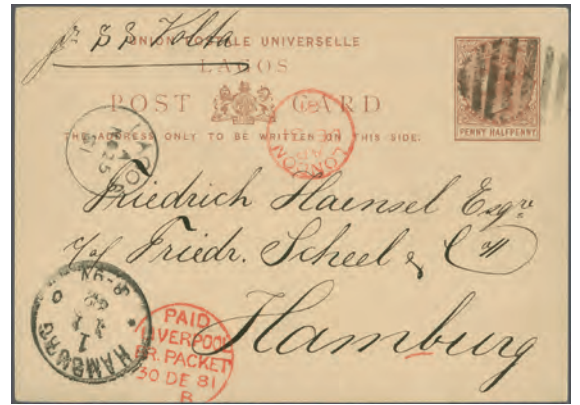 pr S S Volta
UNION POSTALE UNIVERSELLE
LAGOS
POST CARD
THE ADDRESS ONLY TO BE WRITTEN ON THIS SIDE.
PENNY HALFPENNY
LAGOS
A
81
LONDON
81
Friedrich Haensel Esqre
c/o Friedr. Scheel & Co
Hamburg
HAMBURG
1
1
82
8-9N
PAID
LIVERPOOL
BR. PACKET
30 DE 81
B